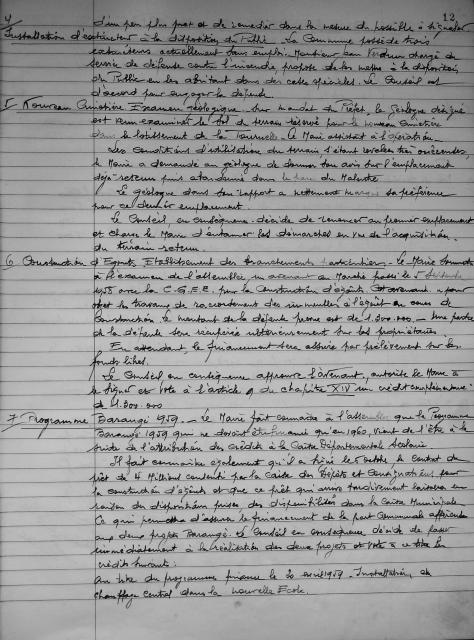 12
d'un peu plus près et de remédier dans la mesure du possible à signaler
4 Installation d'extincteur à la disposition du Public - La Commune possède trois
extincteurs actuellement sans emploi. Monsieur chargé du
service de défense contre l'incendie, propose de les mettre à la disposition
du Public en les abritant dans des caisses spéciales. Le Conseil est
d'accord pour engager la dépense
5 Nouveau Cimetière Examen géologique - Sur mandat du Préfet, le Géologue désigné
est venu examiner le sol du terrain réservé pour le nouveau cimetière
dans le lotissement de la Tournelle. Le Maire assistait à l'opération
Les conditions d'utilisation du terrain s'étant révélées très onéreuses,
le Maire a demandé au géologue de donner son avis sur l'emplacement
déjà retenu puis abandonné dans le
Le géologue dans son rapport a nettement marqué sa préférence
pour ce dernier emplacement.
Le Conseil, en conséquence décide de renoncer au premier emplacement
et charge le Maire d'entamer les démarches en vue de l'acquisition
du terrain retenu.
6 Construction d'Egouts Etablissement des branchements particuliers - Le Maire soumet
à l'examen de l'assemblée un avenant au Marché passé le 5
1958 avec la C.G.E.E. pour la Construction d'égouts. Cet avenant a pour
objet les travaux de raccordement des immeubles à l'égout en cours de
construction. Le montant de la dépense prévue est de 1.800.000 - Une partie
de la dépense sera récupérée ultérieurement sur les propriétaires.
En attendant, le financement sera assuré par prélèvement sur les
fonds libres.
Le Conseil en conséquence approuve l'avenant, autorise le Maire à
le signer et vote à l'article 9 du chapitre XIV un crédit complémentaire
de 1.800.000
7 Programme Barangé 1959 - Le Maire fait connaître à l'assemblée que le Programme
Barangé 1959 qui ne devait être financé qu'en 1960, vient de l'être à la
suite de l'attribution des crédits à la Caisse Départementale Scolaire
Il fait connaître également qu'il a signé le octobre le contrat de
prêt de 4 Millions consenti par la Caisse des Dépôts et Consignations pour
la construction d'égouts et que ce prêt qui aura
raison du disposition prises des disponibilités dans la Caisse Municipale
Ce qui permettra d'assurer le financement de la part Communale afférente
aux deux projets Barangé. Le Conseil en conséquence décide de passer
immédiatement à la réalisation des deux projets et vote à ce titre les
crédits suivants :
Au titre du programme financé le 20 avril 1959 - Installation du
chauffage central dans la nouvelle Ecole.